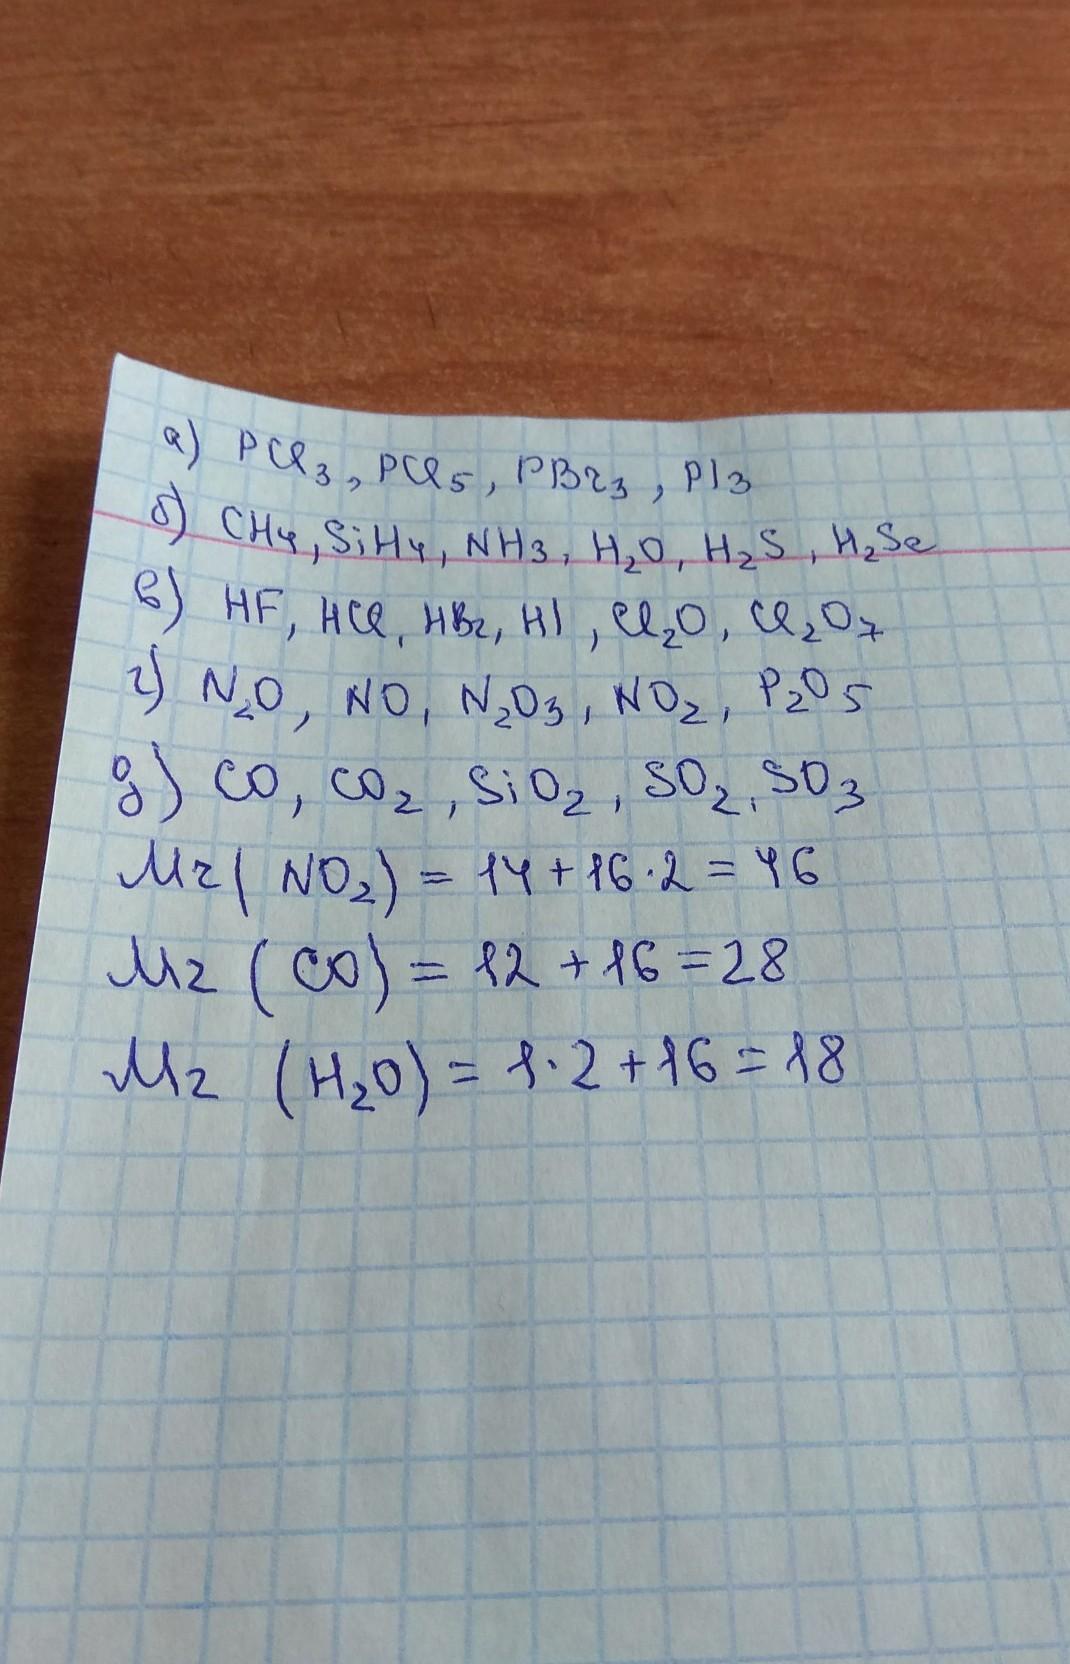 а) PCl₃, PCl₅, PBr₃, PI₃
б) CH₄, SiH₄, NH₃, H₂O, H₂S, H₂Se
в) HF, HCl, HBr, HI, Cl₂O, Cl₂O₇
г) N₂O, NO, N₂O₃, NO₂, P₂O₅
д) CO, CO₂, SiO₂, SO₂, SO₃
Mr( NO₂) = 14 + 16·2 = 46
Mr (CO) = 12 + 16 = 28
Mr (H₂O) = 1·2 + 16 = 18